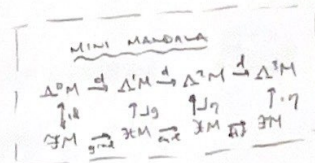 MINI MANDALA
Λ⁰M →d Λ¹M →d Λ²M →d Λ³M
↑id ↑♭g ↑⌟η ↑·η
ℱM →grad 𝔛M →curl 𝔛M →div ℱM